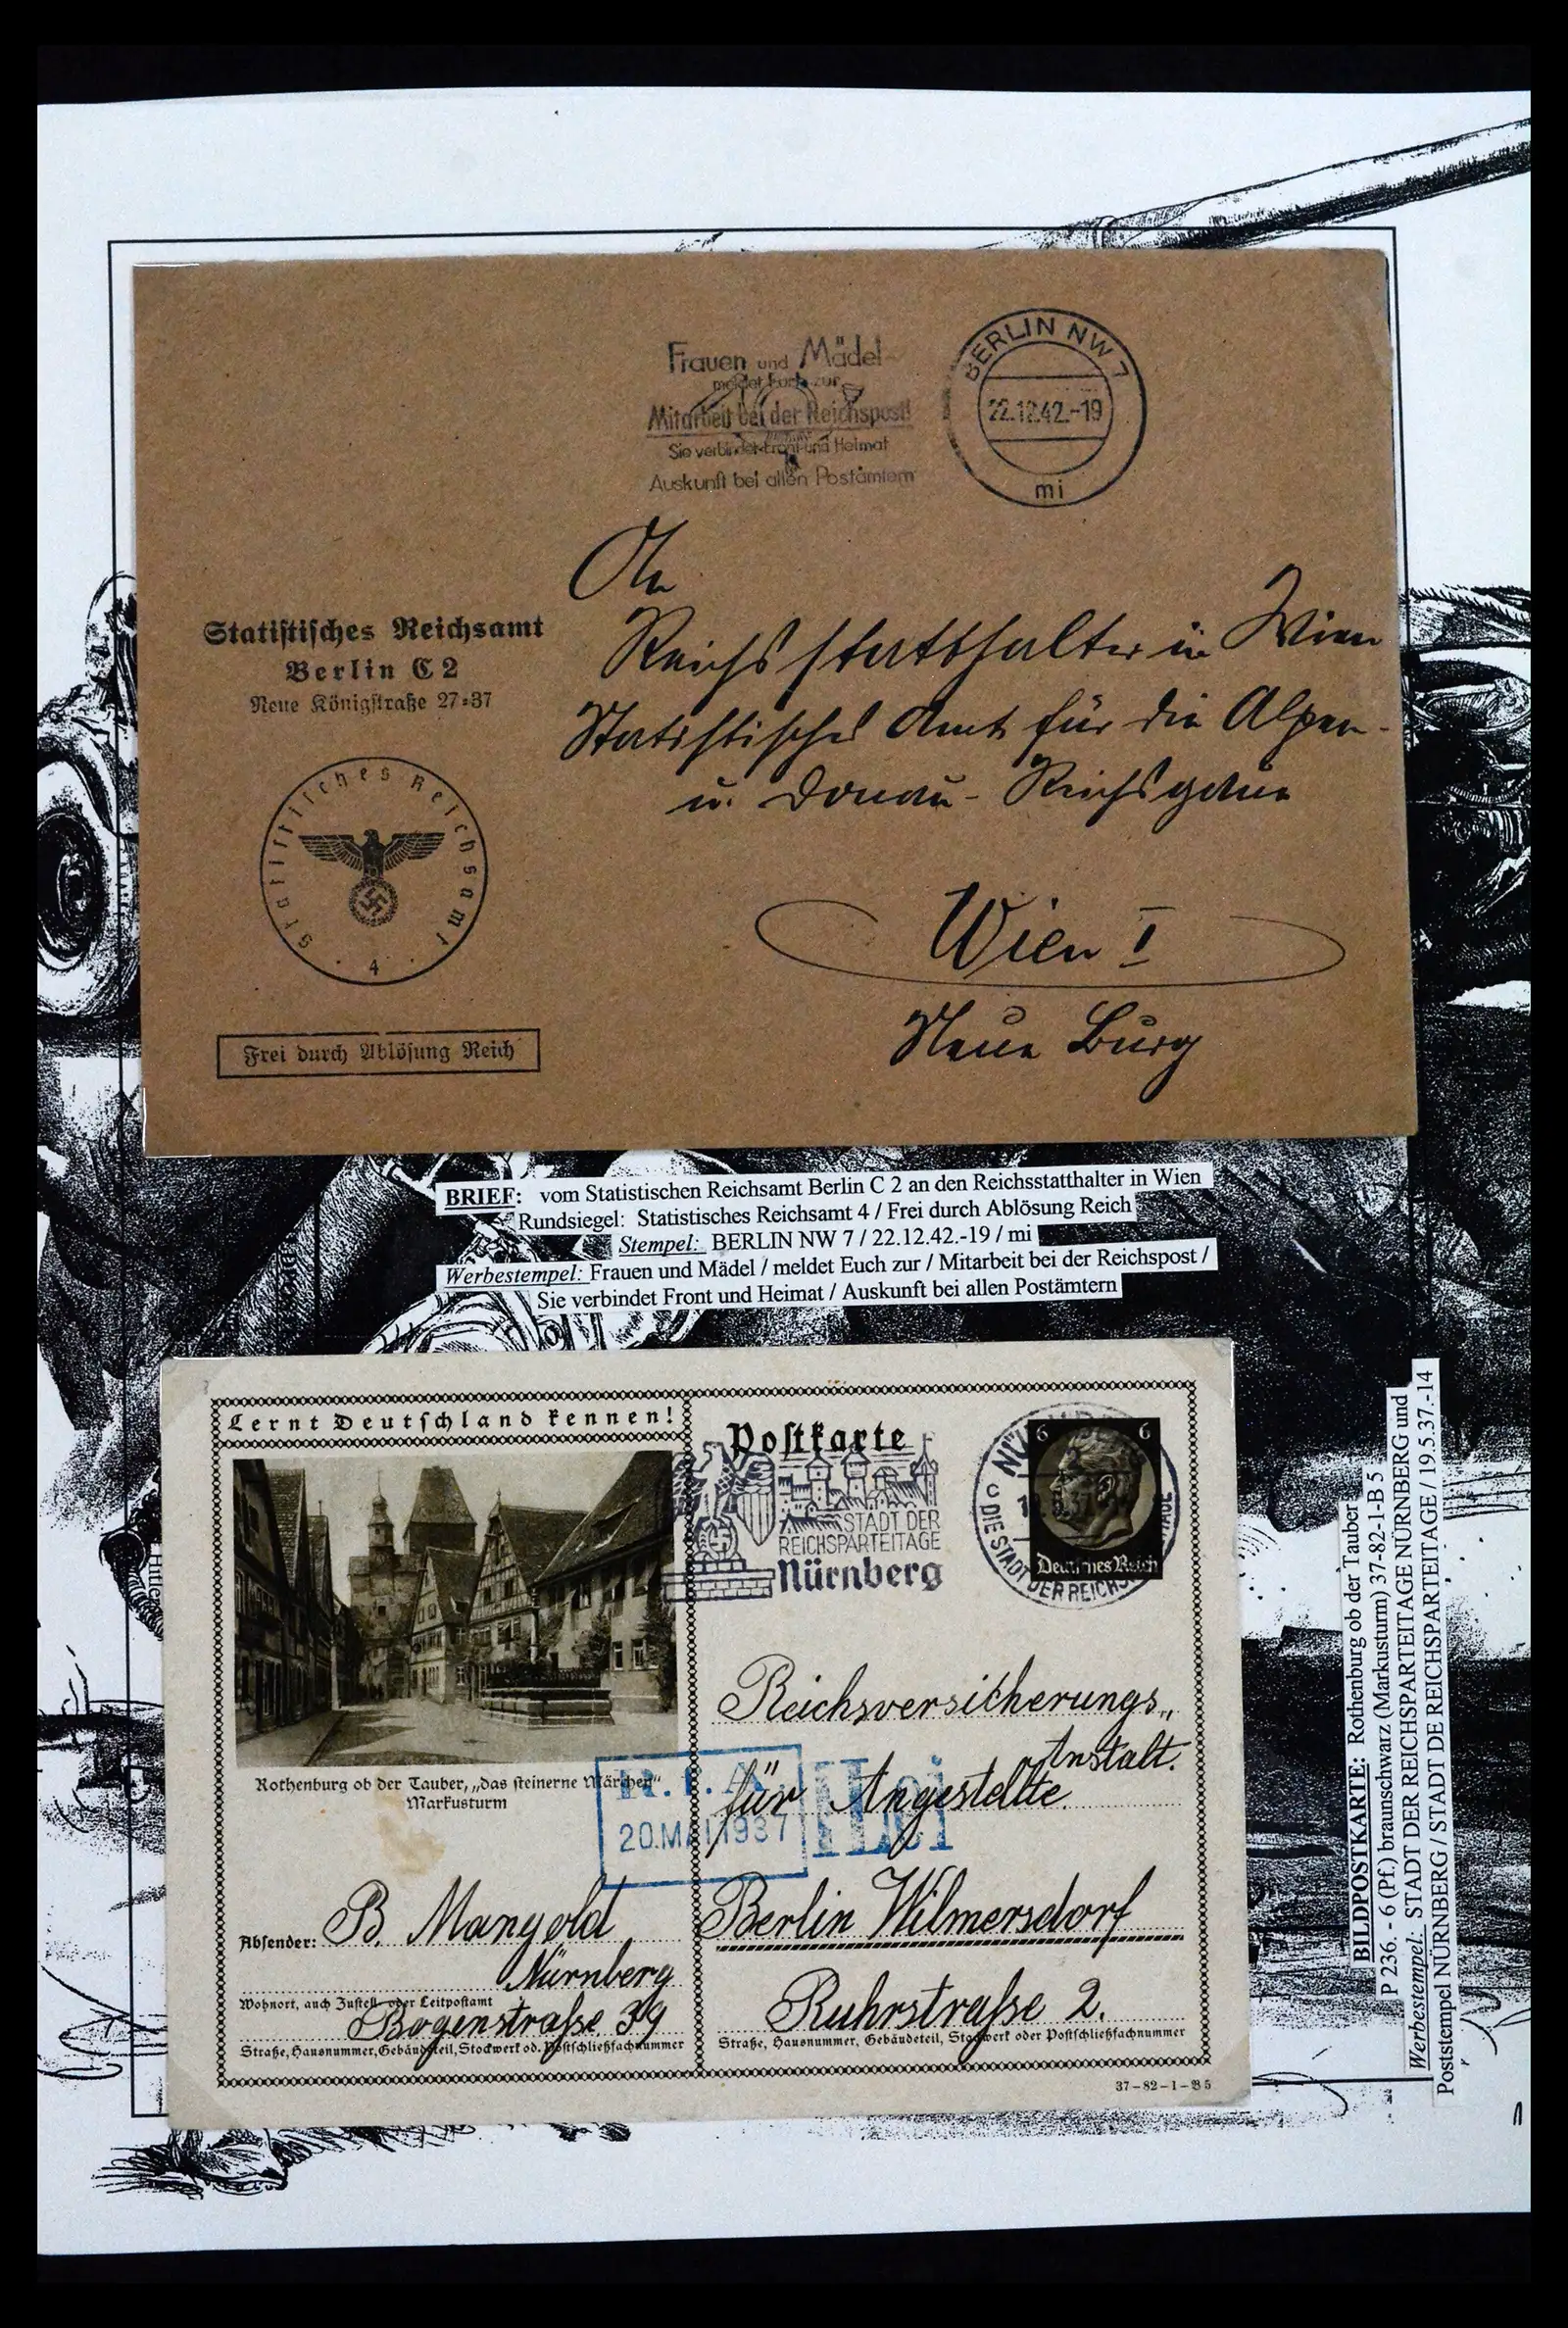 Frauen und Mädel
meldet Euch zur
Mitarbeit bei der Reichspost!
Sie verbindet Front und Heimat
Auskunft bei allen Postämtern
BERLIN NW 7
22.12.42.-19
mi
An
Reichsstatthalter in Wien
Statistisches Amt für die Alpen-
u. Donau-Reichsgaue
Wien I
Neue Burg
Statistisches Reichsamt
Berlin C 2
Neue Königstraße 27-37
Statistisches Reichsamt
4
Frei durch Ablösung Reich
BRIEF: vom Statistischen Reichsamt Berlin C 2 an den Reichsstatthalter in Wien
Rundsiegel: Statistisches Reichsamt 4 / Frei durch Ablösung Reich
Stempel: BERLIN NW 7 / 22.12.42.-19 / mi
Werbestempel: Frauen und Mädel / meldet Euch zur / Mitarbeit bei der Reichspost /
Sie verbindet Front und Heimat / Auskunft bei allen Postämtern
Lernt Deutschland kennen!
Postkarte
STADT DER
REICHSPARTEITAGE
Nürnberg
DIE STADT DER REICHS
6 6
Deutsches Reich
Rothenburg ob der Tauber, „das steinerne Märchen“
Markusturm
R.f.A.
20.MAI 1937
Reichsversicherungs„
Anstalt.
für Angestellte
Berlin Wilmersdorf
Ruhrstraße 2.
Straße, Hausnummer, Gebäudeteil, Stockwerk oder Postschließfachnummer
Absender: B. Mangold
Nürnberg
Wohnort, auch Zustell- oder Leitpostamt
Bogenstraße 39
Straße, Hausnummer, Gebäudeteil, Stockwerk od. Postschließfachnummer
37-82-1-B5
BILDPOSTKARTE: Rothenburg ob der Tauber
P 236. - 6 (Pf.) braunschwarz (Markusturm) 37-82-1-B 5
Werbestempel: STADT DER REICHSPARTEITAGE NÜRNBERG und
Poststempel NÜRNBERG / STADT DE REICHSPARTEITAGE / 19.5.37.-14